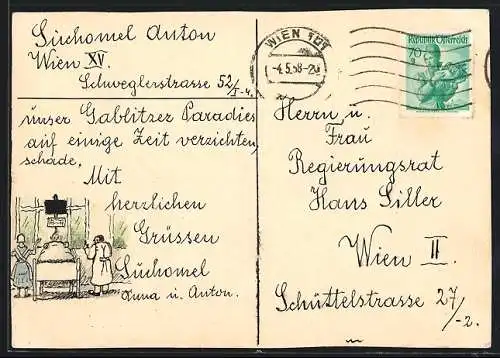 Süchomel Anton
Wien XV.
Schweglerstrasse 52/I-4.
unser Gablitzer Paradies
auf einige Zeit verzichten,
schade,
Mit
herzlichen
Grüssen
Süchomel
Anna u. Anton.
WIEN 101
-4.5.58-20
Republik Österreich
70 g
Herrn u.
Frau
Regierungsrat
Hans Siller
Wien II.
Schüttelstrasse 27/-2.